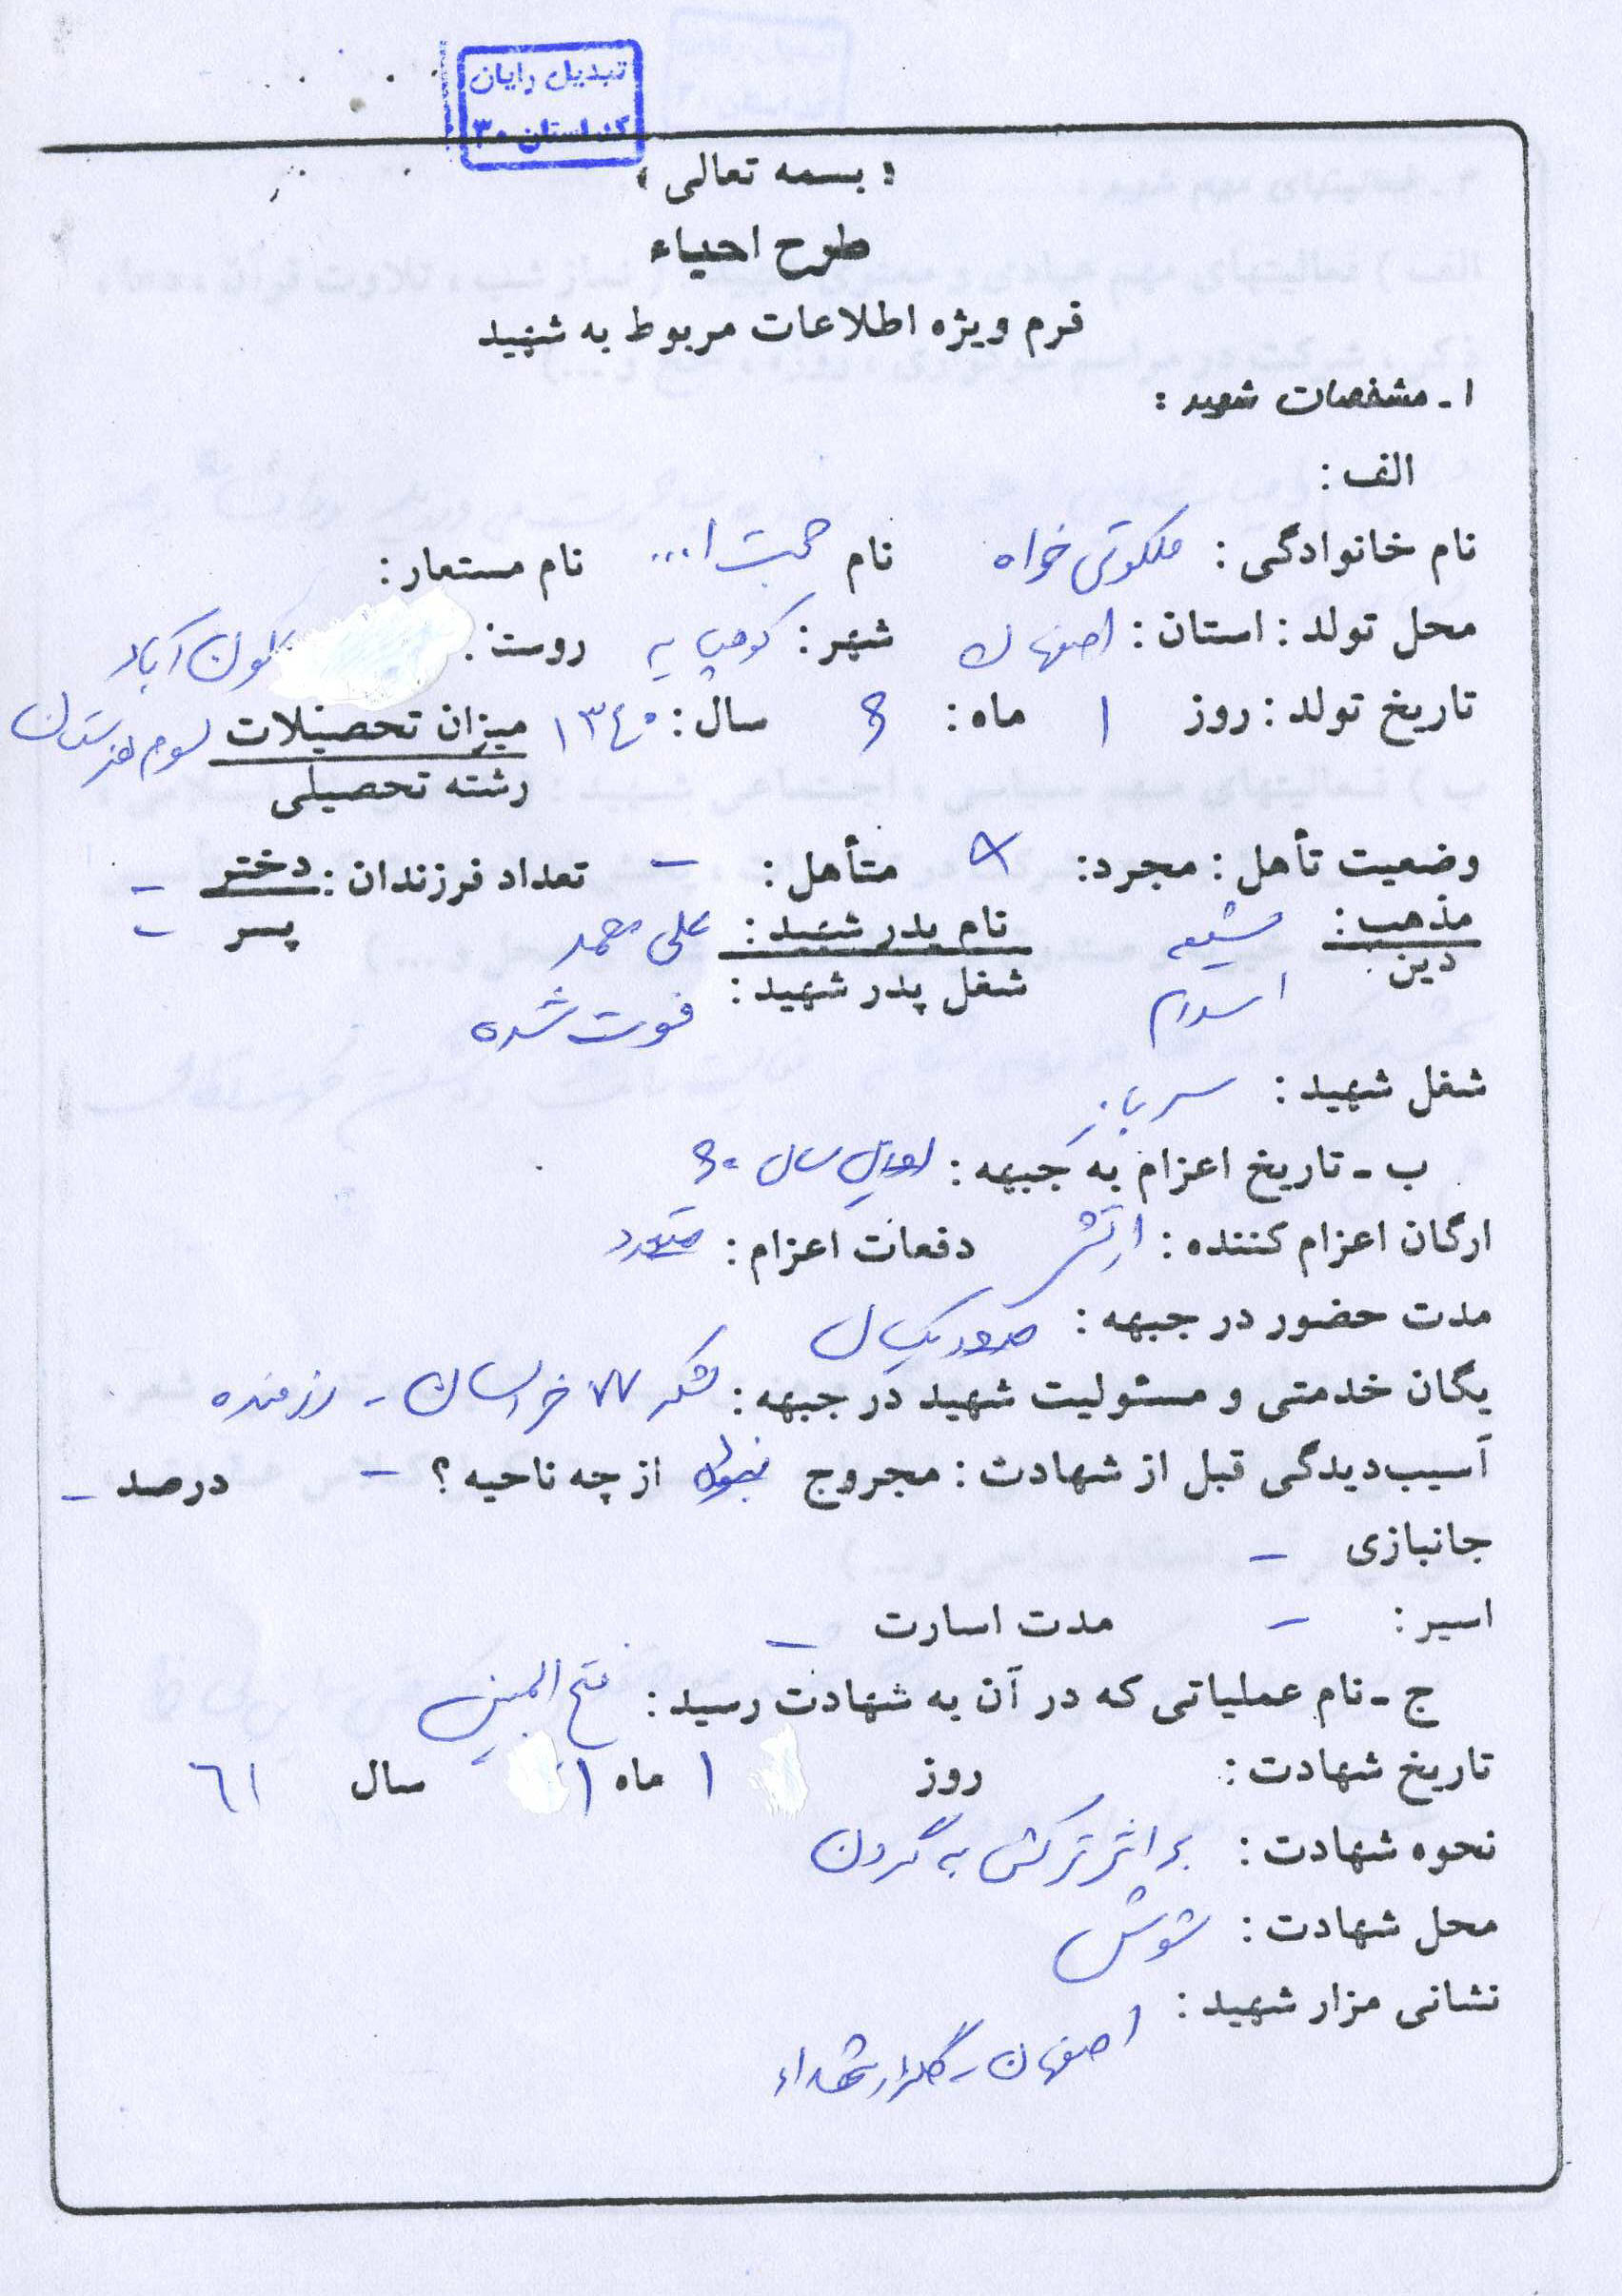 تبدیل رایان
کد استان ۳۰
« بسمه تعالی »
طرح احیاء
فرم ویژه اطلاعات مربوط به شهید
۱ـ مشخصات شهید :
الف :
نام خانوادگی : ملکوتی خواه نام حجت ا... نام مستعار :
محل تولد : استان : اصفهان شهر : کوهپایه روستا :
تاریخ تولد : روز ۱ ماه : ۶ سال : ۱۳۴۰ میزان تحصیلات سوم هنرستان
رشته تحصیلی
وضعیت تأهل : مجرد : متأهل : – تعداد فرزندان : دختر –
مذهب : شیعه نام پدر شهید : علی محمد پسر –
دین اسلام شغل پدر شهید : فوت شده
شغل شهید : سرباز
ب ـ تاریخ اعزام به جبهه : اوایل سال ۶۰
ارگان اعزام کننده : ارتش دفعات اعزام : متعدد
مدت حضور در جبهه : حدود یکسال
یگان خدمتی و مسئولیت شهید در جبهه : لشکر ۷۷ خراسان - رزمنده
آسیب‌دیدگی قبل از شهادت : مجروح از چه ناحیه ؟ – درصد –
جانبازی –
اسیر : – مدت اسارت –
ج ـ نام عملیاتی که در آن به شهادت رسید : فتح المبین
تاریخ شهادت : روز ۱ ماه ۱ سال ۶۱
نحوه شهادت : بر اثر ترکش به گردن
محل شهادت : شوش
نشانی مزار شهید : اصفهان - گلزار شهداء